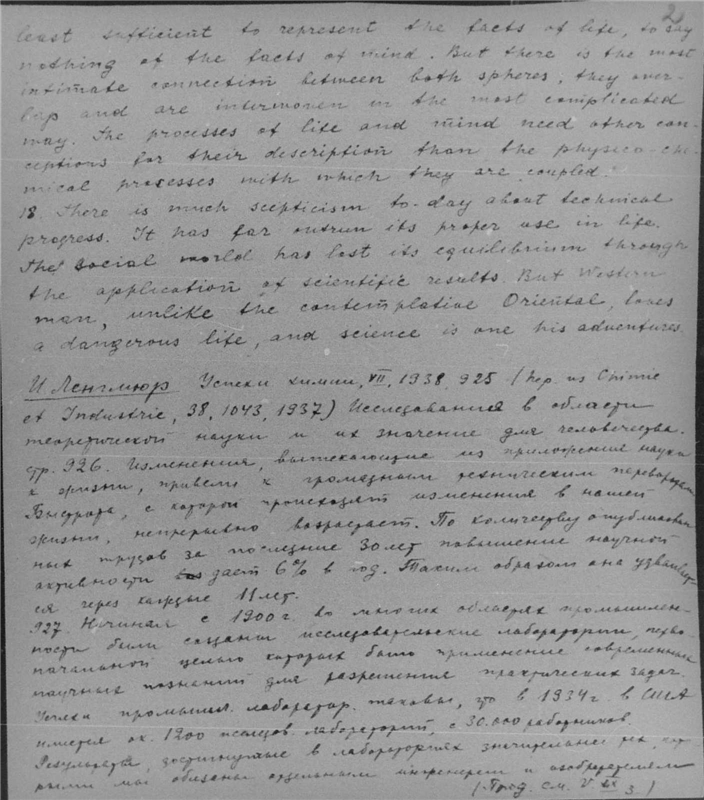 2
least sufficient to represent the facts of life, to say
nothing of the facts of mind. But there is the most
intimate connection between both spheres, they over-
lap and are interwoven in the most complicated
way. The processes of life and mind need other con-
ceptions for their description than the physico-che-
mical processes with which they are coupled.
18. There is much scepticism to-day about technical
progress. It has far outrun its proper use in life.
The social world has lost its equilibrium through
the application of scientific results. But Western
man, unlike the contemplative Oriental, loves
a dangerous life, and science is one his adventures.
И Ленгмюр Успехи химии, VII, 1938, 925 (пер. из Chimie
et Industrie, 38, 1043, 1937) Исследования в области
теоретической науки и их значение для человечества.
стр. 926. Изменения, вытекающие из приложения науки
к жизни, привели к громадным техническим переворотам
Быстрота, с которой происходят изменения в нашей
жизни, непрерывно возрастает. По количеству опубликован
ных трудов за последние 30 лет повышение научной
активности дает 6% в год. Таким образом она удваивает-
ся через каждые 11 лет.
927. Начиная с 1900 г. во многих областях промышлен-
ности были созданы исследовательские лаборатории, перво-
начальной целью которых было применение современных
научных познаний для разрешения практических задач.
Успехи промышл. лаборатор. таковы, что в 1934 г. в США
имеется ок. 1200 исследов. лабораторий, с 30.000 работников.
Результаты, достигнутые в лабораториях значительнее тех, кото-
рыми мы обязаны отдельным инженерам и изобретателям
(Прод. см. V 3)